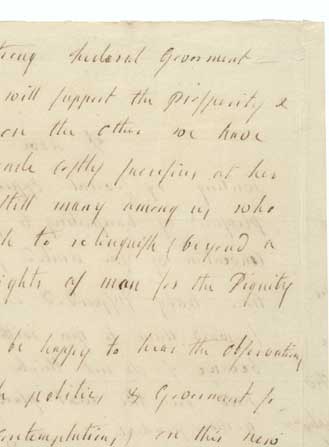 trong federal Goverment —
will support the Prosperity &
on the other we have
made costly sacrifices at her
still many among us who
to relinquish (beyond a
ights of man for the Dignity
be happy to hear the Observations
politics & Goverment fo
ontemplations) on this new